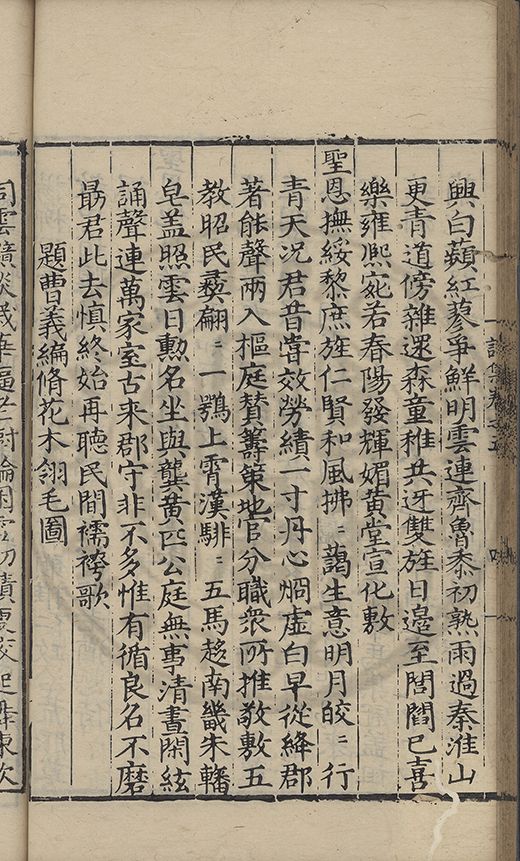 興白蘋紅蓼爭鮮明雲連齊魯黍初熟雨過秦淮山
更青道傍雜遝森童稚共迓雙旌日邊至閭閻已喜
樂雍熙宛若春陽發輝媚黄堂宣化敷
聖恩撫綏黎庶旌仁賢和風拂〻藹生意明月皎〻行
青天况君昔嘗效勞績一寸丹心烱虛白早從絳郡
著能聲兩入樞庭賛籌策地官分職衆所推敬敷五
教昭民彛翩〻一鶚上霄漢騑〻五馬趍南畿朱轓
皂盖照雲日勲名坐與龔黄匹公庭無事清晝閑絃
誦聲連萬家室古来郡守非不多惟有循良名不磨
勗君此去慎終始再聽民間襦袴歌
題曹義編脩花木翎毛圖